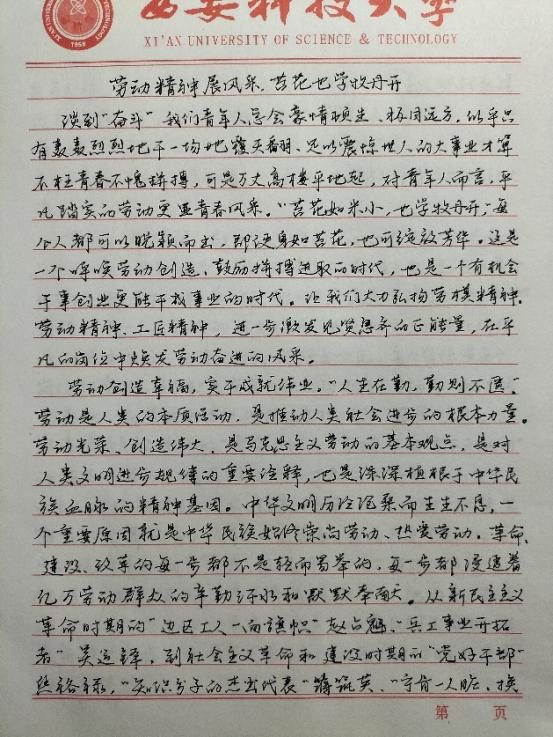 西安科技大学
XI'AN UNIVERSITY OF SCIENCE & TECHNOLOGY
1958
劳动精神展风采，苔花也学牡丹开
谈到“奋斗”我们青年人总会豪情顿生、极目远方，似乎只
有轰轰烈烈地干一场地覆天翻、足以震惊世人的大事业才算
不枉青春不愧拼搏，可是万丈高楼平地起，对青年人而言，平
凡踏实的劳动更显青春风采。“苔花如米小，也学牡丹开”，每
个人都可以脱颖而出，即便身如苔花，也可绽放芳华。这是
一个呼唤劳动创造、鼓励拼搏进取的时代，也是一个有机会
干事创业更能干成事业的时代。让我们大力弘扬劳模精神、
劳动精神、工匠精神，进一步激发见贤思齐的正能量，在平
凡的岗位中焕发劳动奋进的风采。
劳动创造幸福，实干成就伟业。“人生在勤，勤则不匮”
劳动是人类的本质活动，是推动人类社会进步的根本力量。
劳动光荣、创造伟大，是马克思主义劳动的基本观点，是对
人类文明进步规律的重要诠释，也是深深植根于中华民
族血脉的精神基因。中华文明历经沧桑而生生不息，一
个重要原因就是中华民族始终崇尚劳动、热爱劳动。革命、
建设、改革的每一步都不是轻而易举的，每一步都浸透着
亿万劳动群众的辛勤汗水和默默奉献。从新民主主义
革命时期的“边区工人一面旗帜”赵占魁、“兵工事业开拓
者”吴运铎，到社会主义革命和建设时期的“党好干部”
焦裕禄，“知识分子的杰出代表”蒋筑英、“宁肯一人脏、换
第 页